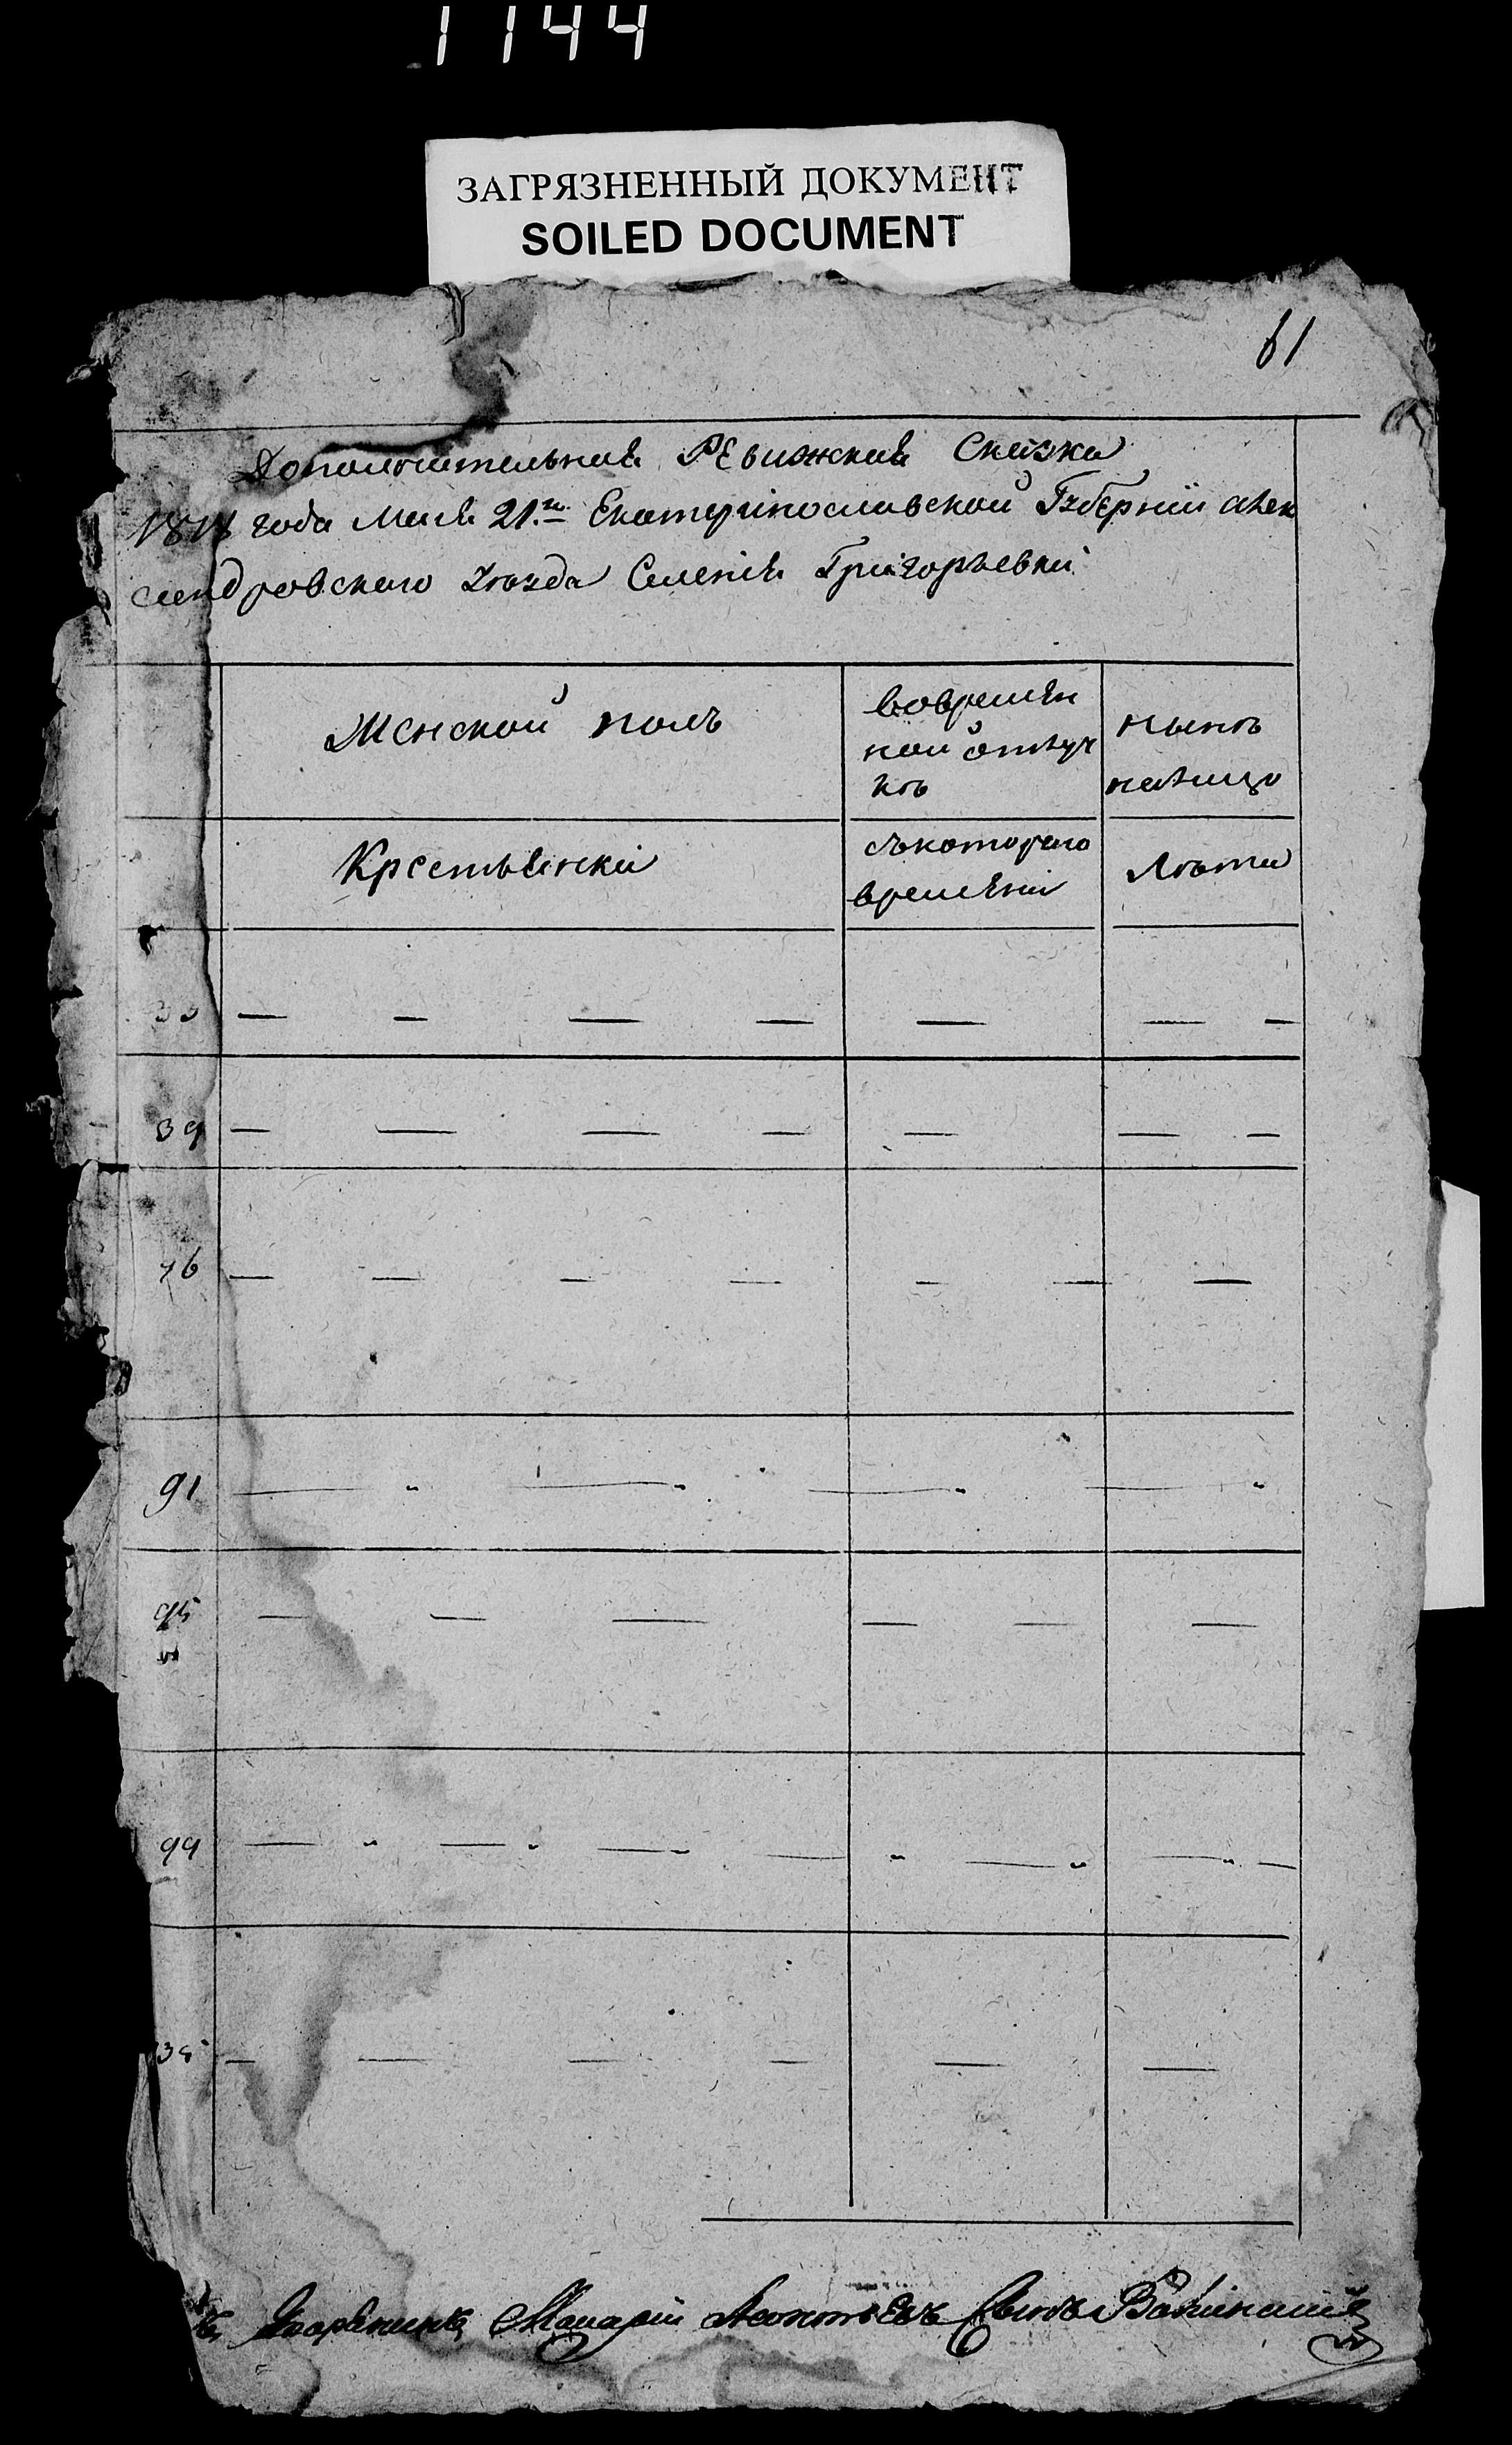 1144
ЗАГРЯЗНЕННЫЙ ДОКУМЕНТ
SOILED DOCUMENT
61
Дополнительная Ревижская Сказка
1818 года Мая 21.го Екатеринославской Губернии Алек
сандровского Уезда Селения Григорьевки
Женской полъ
вовремян
ной отлуч
кѣ
нынѣ
налицо
Крестьянки
съкоторого
времяни
Лѣта
39
76
91
95
99
Дворянинъ Макарий Леонтьевъ Сынъ